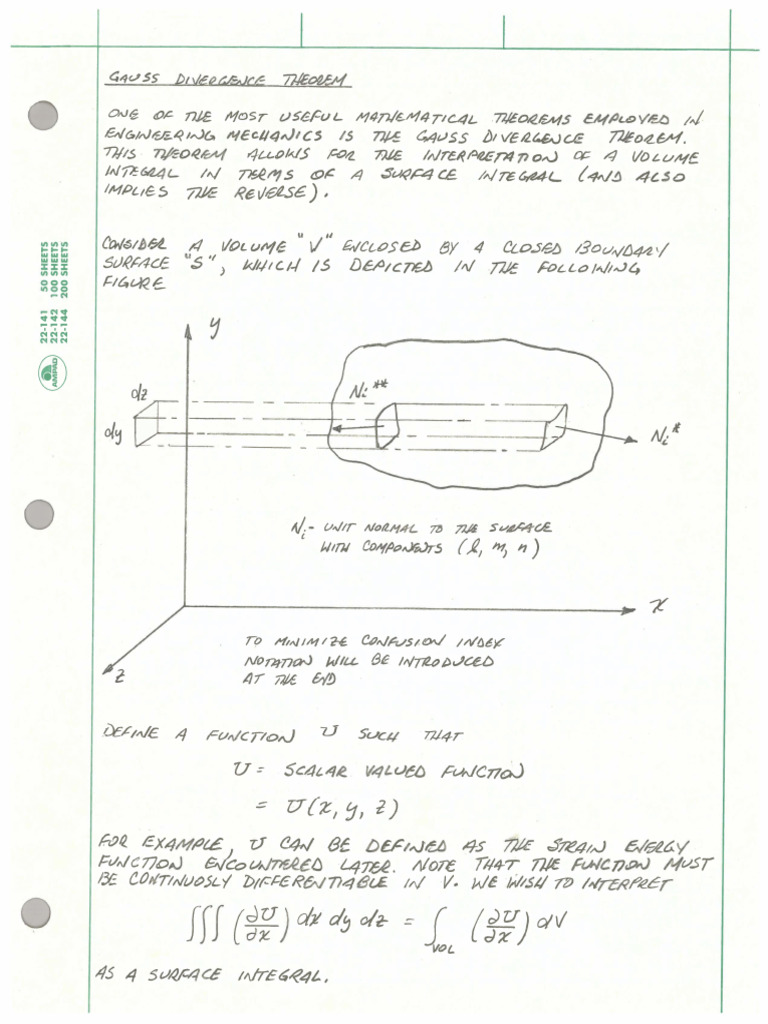 GAUSS DIVERGENCE THEOREM
ONE OF THE MOST USEFUL MATHEMATICAL THEOREMS EMPLOYED IN
ENGINEERING MECHANICS IS THE GAUSS DIVERGENCE THEOREM.
THIS THEOREM ALLOWS FOR THE INTERPRETATION OF A VOLUME
INTEGRAL IN TERMS OF A SURFACE INTEGRAL (AND ALSO
IMPLIES THE REVERSE).
22-141 50 SHEETS
22-142 100 SHEETS
22-144 200 SHEETS
AMPAD
CONSIDER A VOLUME "V" ENCLOSED BY A CLOSED BOUNDARY
SURFACE "S", WHICH IS DEPICTED IN THE FOLLOWING
FIGURE
y
dz
Ni**
dy
Ni*
Ni - UNIT NORMAL TO THE SURFACE
WITH COMPONENTS (l, m, n)
x
z
TO MINIMIZE CONFUSION INDEX
NOTATION WILL BE INTRODUCED
AT THE END
DEFINE A FUNCTION U SUCH THAT
U = SCALAR VALUED FUNCTION
= U(x, y, z)
FOR EXAMPLE, U CAN BE DEFINED AS THE STRAIN ENERGY
FUNCTION ENCOUNTERED LATER. NOTE THAT THE FUNCTION MUST
BE CONTINUOSLY DIFFERENTIABLE IN V. WE WISH TO INTERPRET
∫∫∫ (∂U/∂x) dx dy dz = ∫VOL (∂U/∂x) dV
AS A SURFACE INTEGRAL.